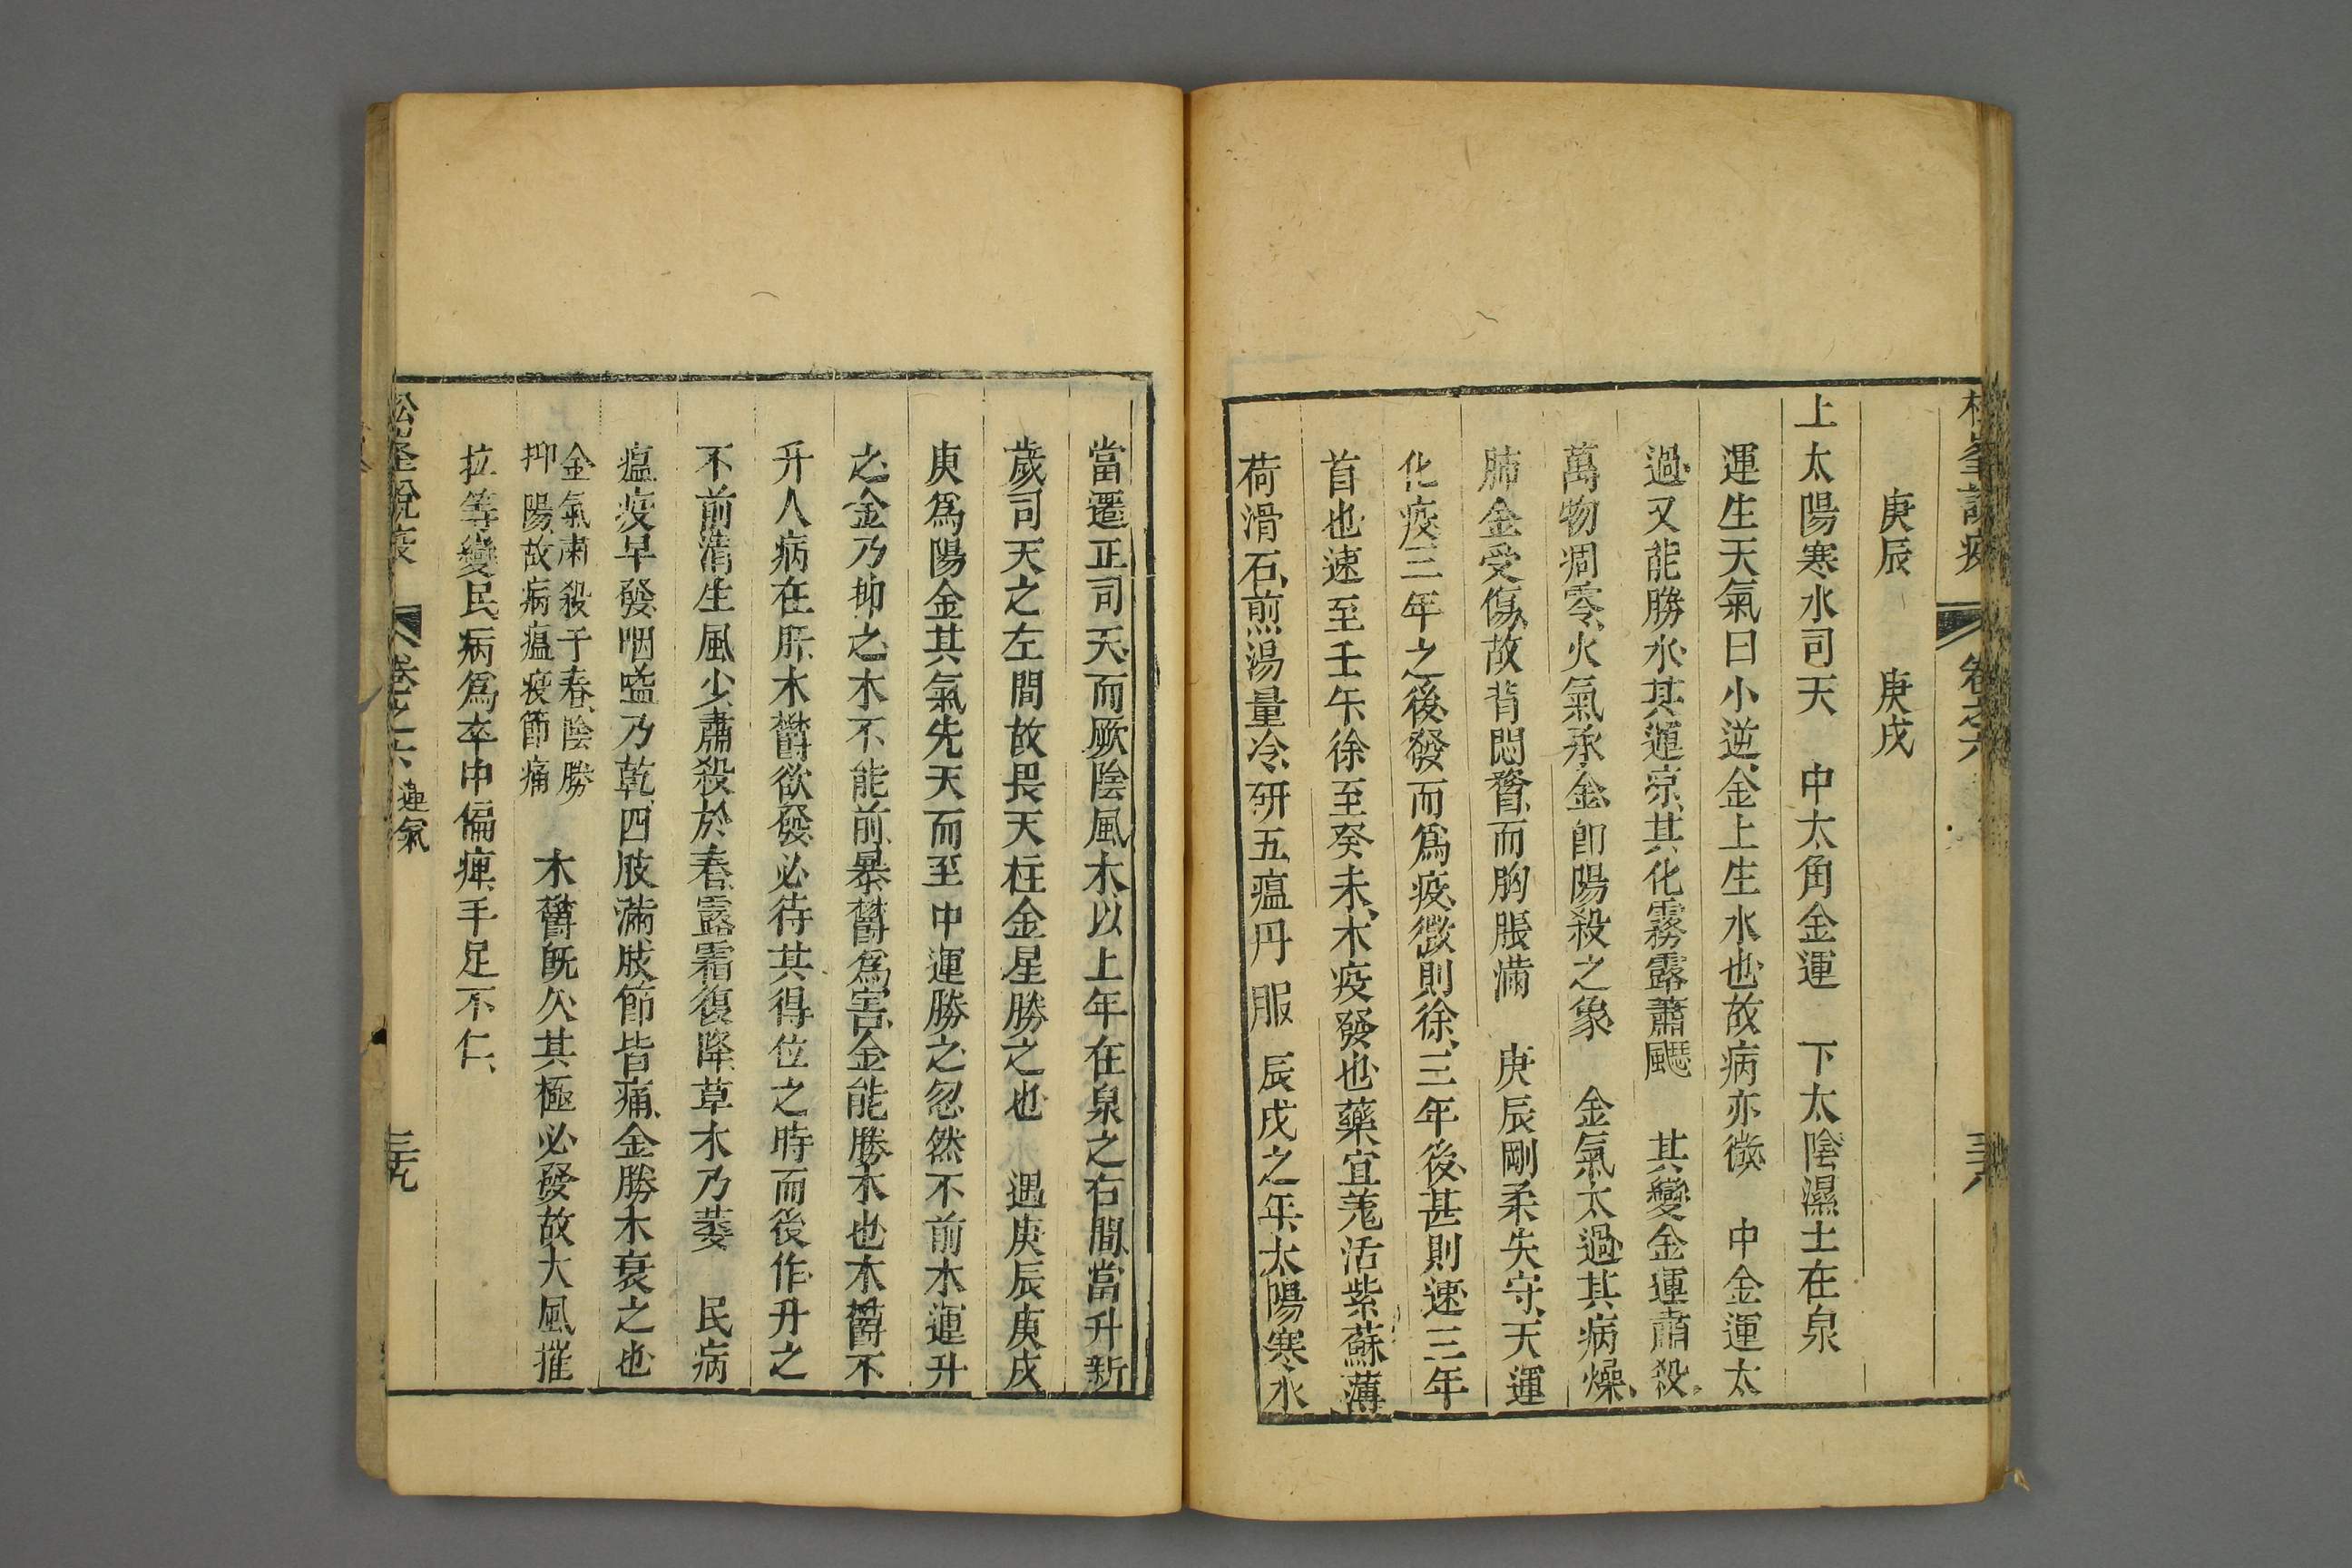 松峯說疫 卷之六 三六
庚辰 庚戌
上太陽寒水司天 中太角金運 下太陰濕土在泉
運生天氣曰小逆、金上生水也、故病亦微 中金運太
過、又能勝水、其運凉、其化霧露蕭飋 其變金運肅殺、
萬物凋零、火氣承金、卽陽殺之象 金氣太過、其病燥、
肺金受傷、故背悶瞀、而胸脹滿 庚辰剛柔失守、天運
化疫、三年之後、發而爲疫、微則徐、三年後、甚則速、三年
首也、速至壬午、徐至癸未、木疫發也、藥宜羗活紫蘇薄
荷滑石、煎湯量冷、研五瘟丹服 辰戌之年、太陽寒水
當遷正司天、而厥陰風木、以上年在泉之右間、當升新
歲司天之左間、故畏天柱金星勝之也 遇庚辰庚戌
庚爲陽金、其氣先天而至、中運勝之、忽然不前、木運升
之、金乃抑之、木不能前、暴鬱爲害、金能勝木也、木鬱不
升、人病在肝、木鬱欲發、必待其得位之時而後作、升之
不前、清生風少、肅殺於春、露霜復降、草木乃萎 民病
瘟疫早發、咽嗌乃乾、四肢滿、肢節皆痛、金勝木衰之也
金氣肅殺于春、陰勝
抑陽、故病瘟疫節痛 木鬱旣久、其極必發、故大風摧
拉等變、民病爲卒中偏痺、手足不仁、
松峯說疫 卷之六 運氣 三九